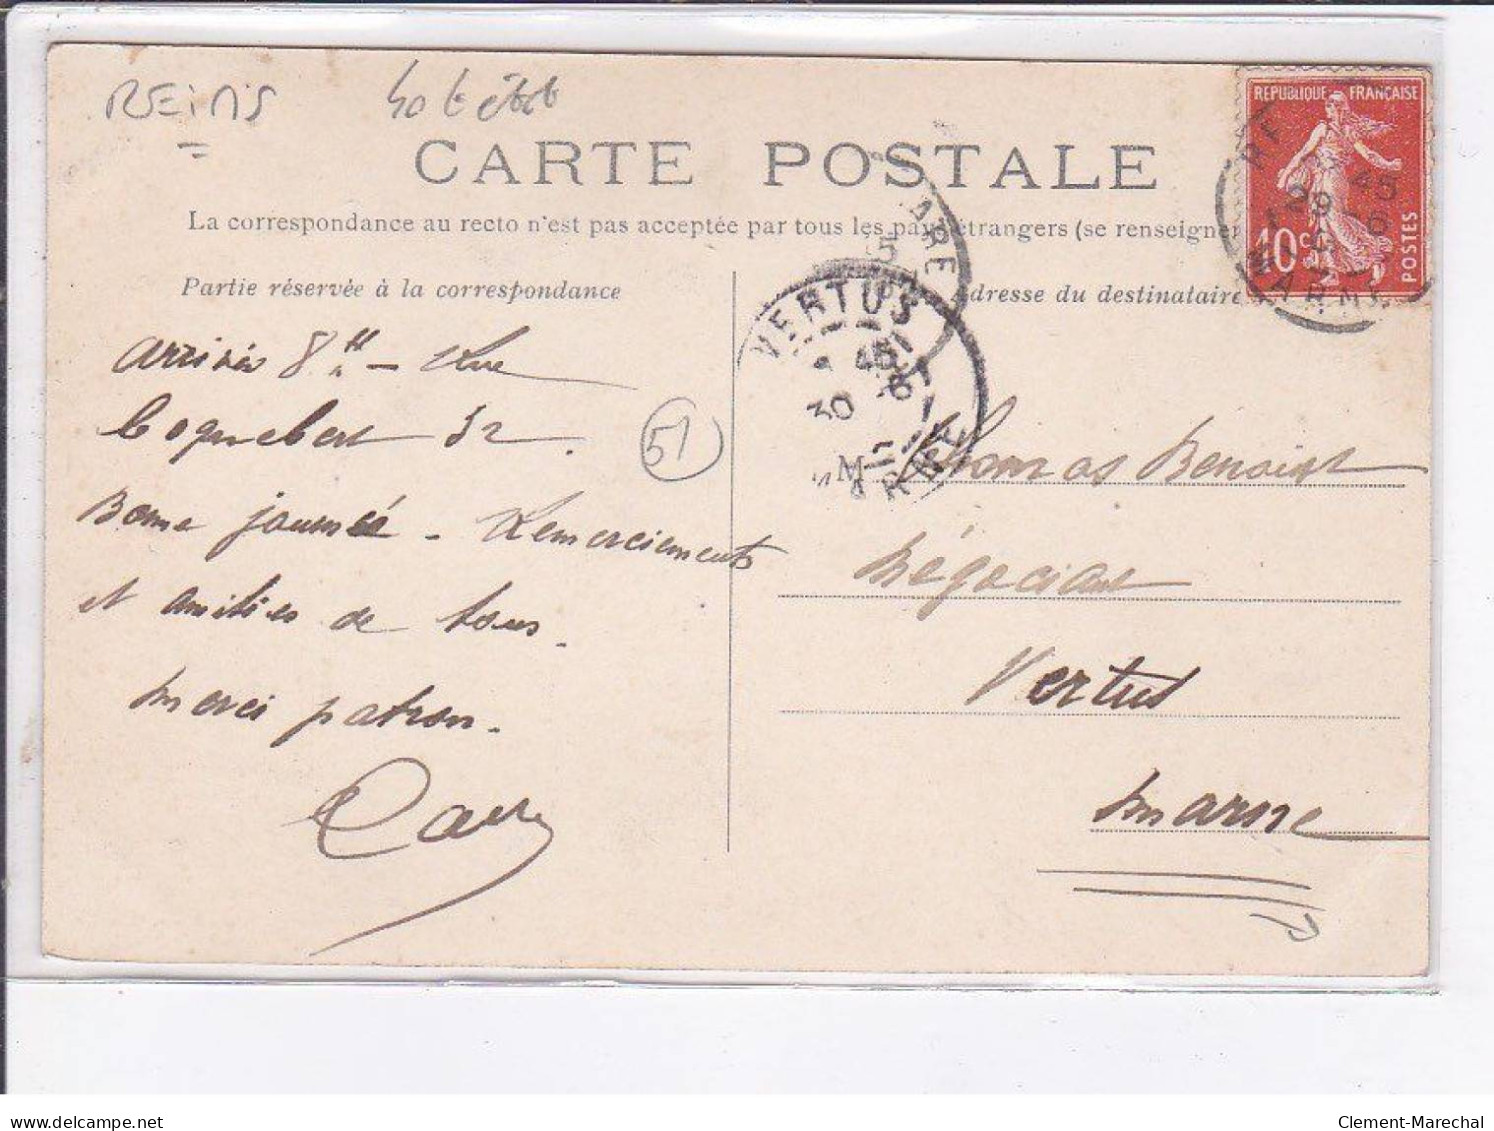 REIMS
CARTE POSTALE
La correspondance au recto n'est pas acceptée par tous les pays étrangers (se renseigner
Partie réservée à la correspondance
Adresse du destinataire
REPUBLIQUE FRANÇAISE
10c
POSTES
45
29-6
MARNE
GARE
5
VERTUS
45
30 -6
MARNE
arrivée 8 H - Rue
Coquebert 32.
51
Bonne journée - Remerciements
et amitiés de tous.
merci patron.
M Thomas Benoist
Négociant
Vertus
Marne
www.delcampe.net
Clement-Marechal